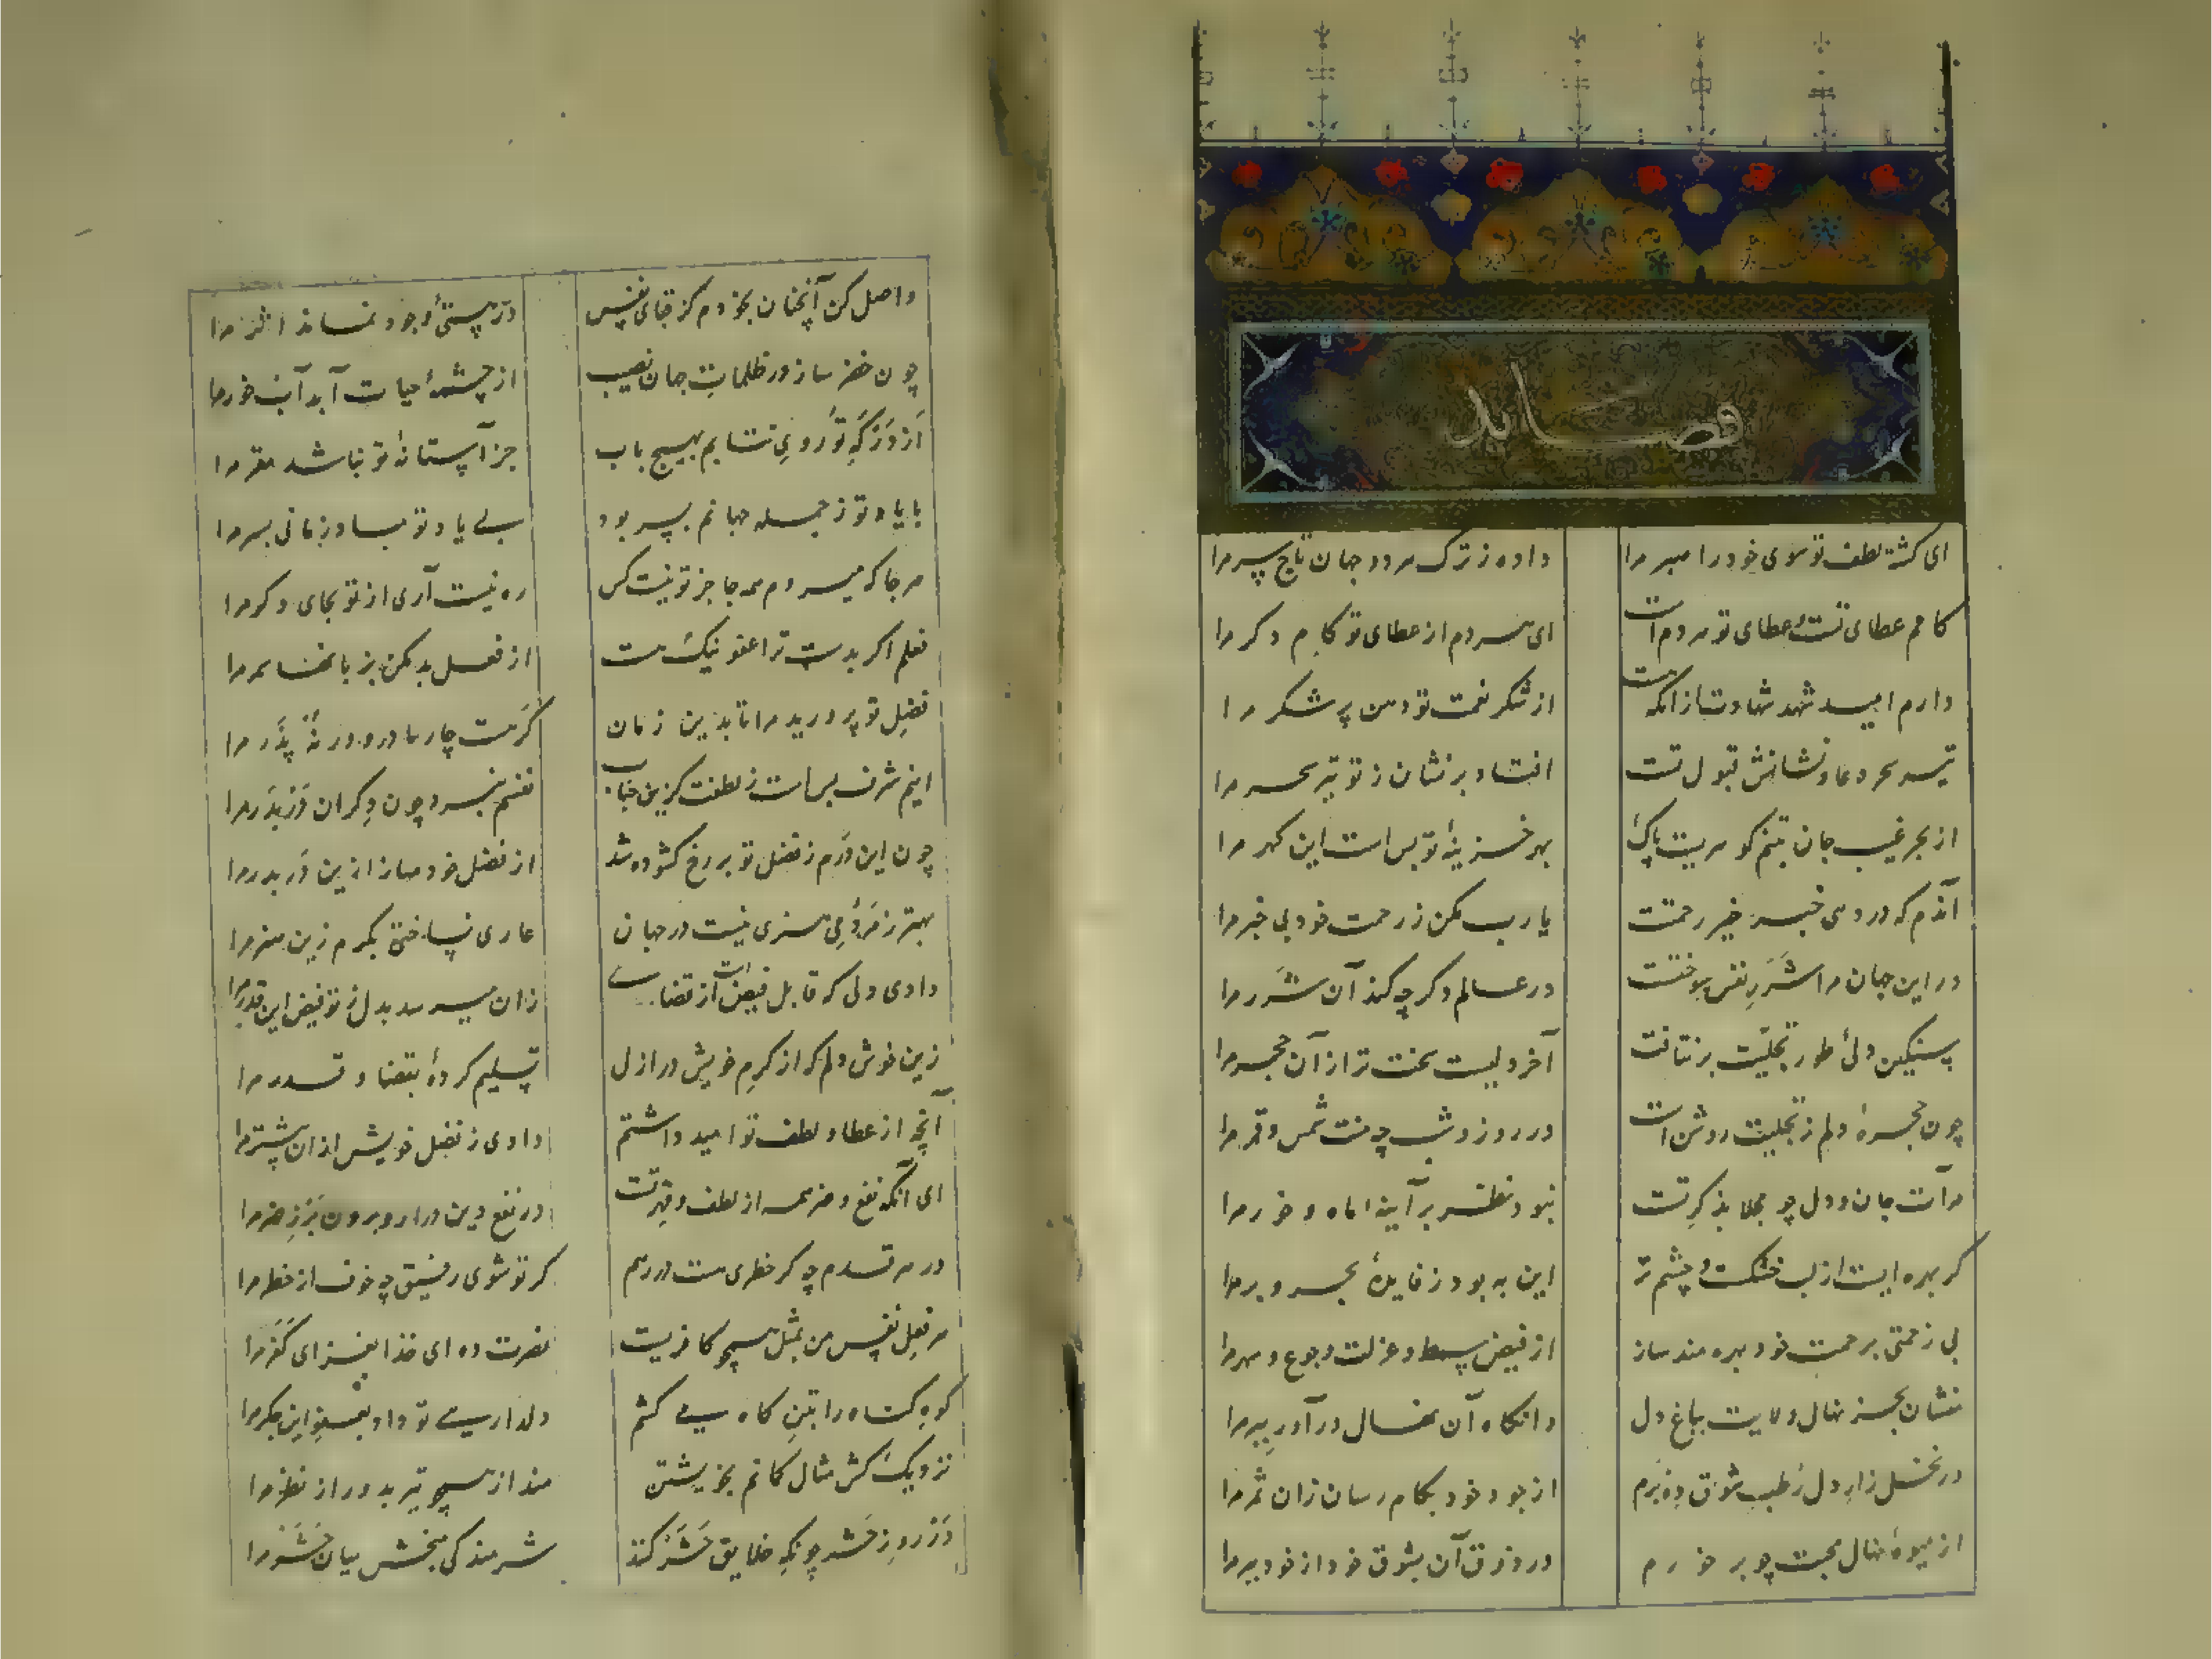 قصاید
ای گشته لطف تو سوی خود راهبر مرا
داده ز ترک هر دو جهان تاج سر مرا
کامم عطای تست عطای تو هر دم است
ای هر دم از عطای تو کام دگر مرا
دارم امید شهد شهادت از آنکه هست
از شکر نعمت تو دهن پر شکر مرا
تیر سحر دعا و نشانش قبول تست
افتاد بر نشان ز تو تیر سحر مرا
از بحر غیب جان بتنم گوهریست پاک
بهر خزینهٔ تو بس است این گهر مرا
آندم که در دمی خبر خیر رحمتت
یا رب مکن ز رحمت خود بی خبر مرا
در این جهان مرا شرر نفس سوختت
در عالم دگر چه کند آن شرر مرا
سنگین دلی طور تجلیت بر نتافت
آخر دلیست سخت تر از آن حجر مرا
چون حجرهٔ دلم ز تجلیت روشن است
در روز و شب چه منت شمس و قمر مرا
مرآت جان و دل چو مجلا بذکر تست
نبود نظر بر آینه ماه و خور مرا
گر بهره ایست از لب خشک و چشم تر
این به بود ز فایدهٔ بحر و بر مرا
بی زحمتی برحمت خود بهره مند ساز
از فیض و عزلت و جوع و سهر مرا
بنشان بحسن نهال ولایت بباغ دل
وانگاه آن نهال درآور ببر مرا
در نخل زار دل رطب شوق ده برم
از جود خود بکام رسان زان ثمر مرا
از میوهٔ نهال محبت چو بر خورم
در ذوق آن بشوق خود از خود ببر مرا
واصل کن آنچنان بخودم کز قبای نفس
در هستی وجود نماند اثر مرا
چون خضر ساز در ظلمات جهان نصیب
از چشمهٔ حیات آبد آبخور مرا
از درگه تو روی نتابم بهیچ باب
جز آستانهٔ تو نباشد مقر مرا
با یاد تو ز جمله جهانم بسر بود
بی یاد تو مباد زمانی بسر مرا
هر جا که میروم همه جا جز تو نیست کس
ره نیست آری از تو بجای دگر مرا
فعلم اگر بدست ترا عفو نیک هست
از فعل بد مکن بزبانها سمر مرا
فضل تو پرورید مرا تا بدین زمان
کرمت چار مادر و ور نه پدر مرا
اینم شرف بس است ز لطفت کزین جناب
نفسم نبرد چون دگران در بدر مرا
چون این درم ز فضل تو بر رخ گشوده شد
از فضل خود مساز ازین در بدر مرا
بهتر ز مردمی هنری نیست در جهان
عاری نساختی بکرم زین هنر مرا
دادی دلی که قابل فیض است از قضای
زان میرسد بدل ز تو فیض این قدر مرا
زین خوش دلم که از کرم خویش در ازل
تسلیم کردهٔ بقضا و قدر مرا
آنچه از عطا و لطف تو امید داشتم
دادی ز فضل خویش از آن بیشتر مرا
ای آنکه نفع و ضر همه از لطف و قهر تست
در نفع دین درآر و برون بر ز ضر مرا
در هر قدم چه گر خطری هست در رهم
گر تو شوی رفیق چه خوف از خطر مرا
هر فعل نفس من بمثل همچو کافریست
نصرت ده ای خدا بغزای کفر مرا
کوه گناه را بتن کاه می کشم
دلداری تو داد این جگر مرا
نزدیک کش مثال کمانم بخویشتن
منداز همچو تیر بدور از نظر مرا
در روز حشر چونکه خلایق حشر کنند
شرمندگی مبخش میان حشر مرا